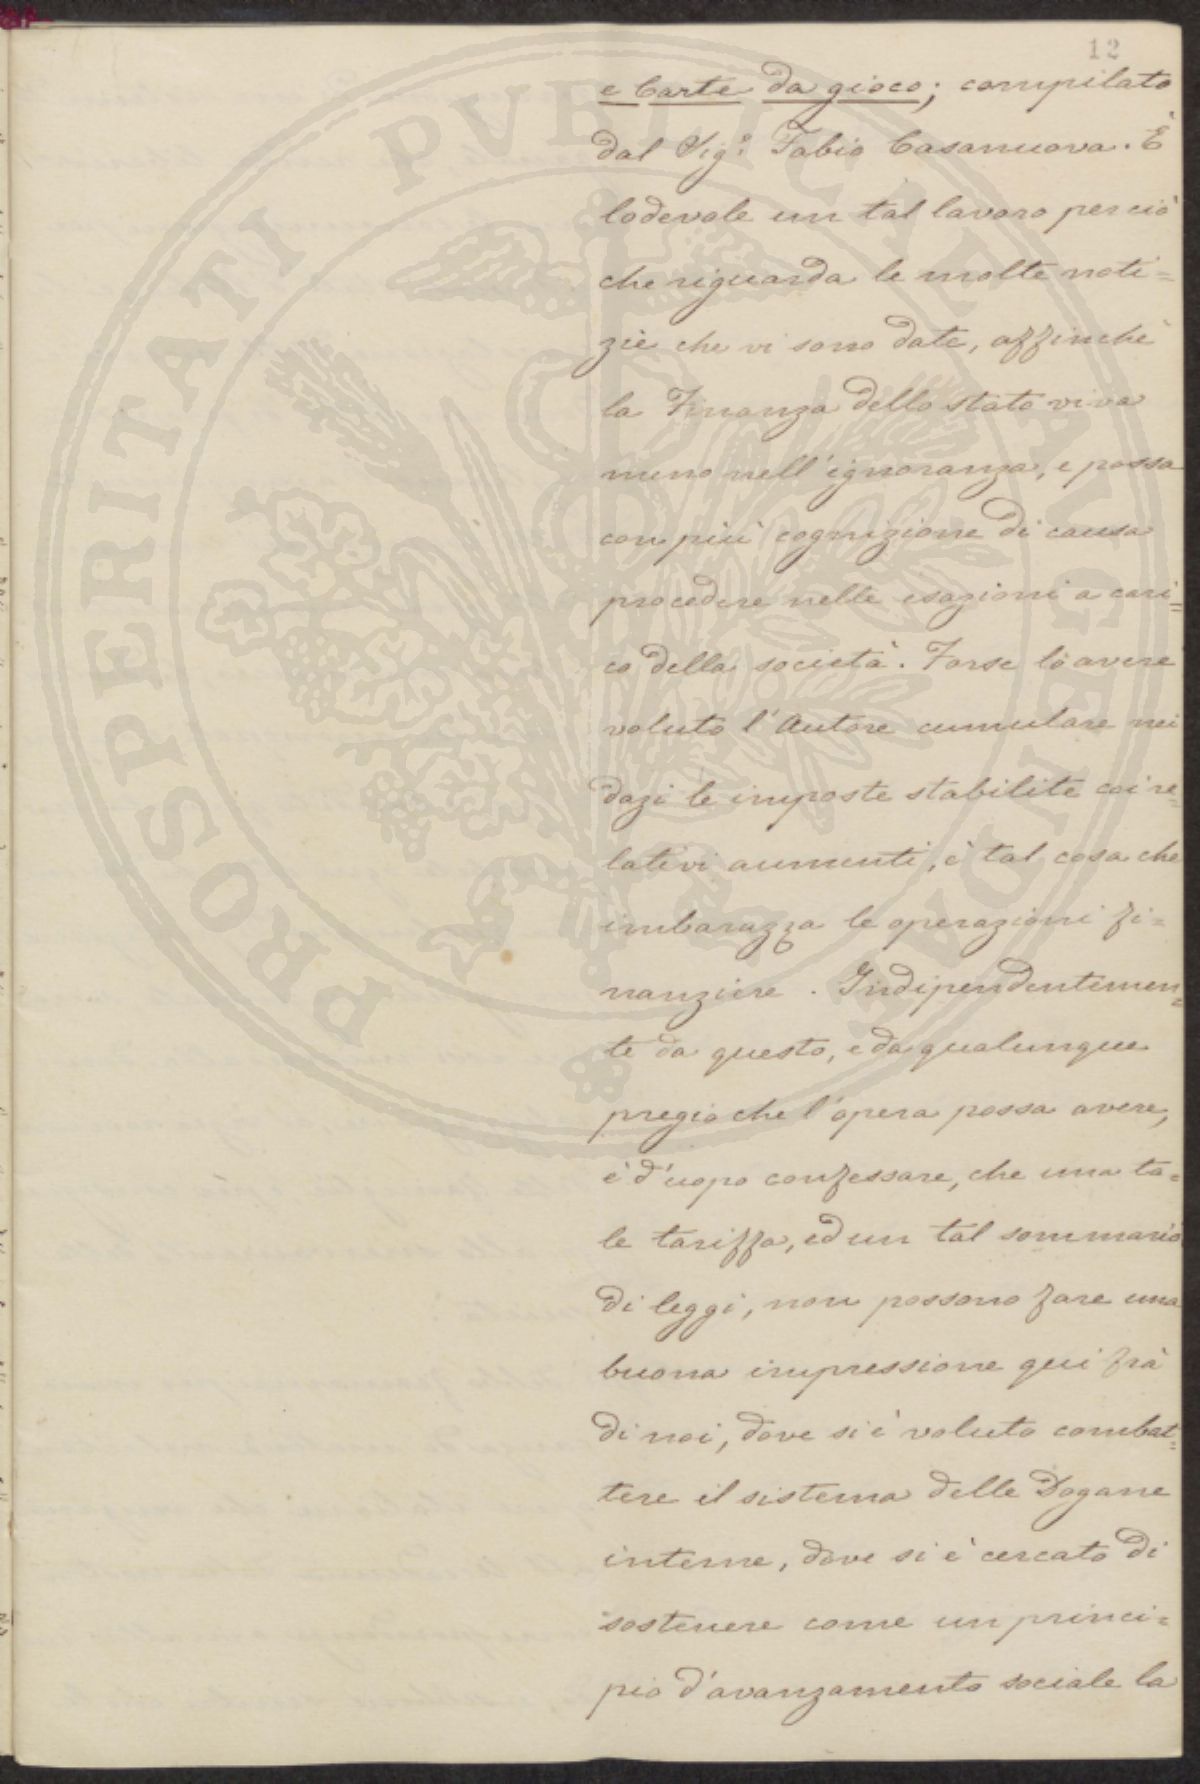 12
e Carte da gioco; compilato
dal Sig.e Fabio Casanuova. È
lodevole un tal lavoro perciò
che riguarda le molte noti=
zie che vi sono date, affinchè
la Finanza dello stato viva
meno nell'ignoranza, e possa
con più cognizione di causa
procedere nelle esazioni a cari=
co della società. Forse lo avere
voluto l'Autore cumulare nei
dazi le imposte stabilite coi re=
lativi aumenti, è tal cosa che
imbarazza le operazioni fi=
nanziere. Indipendentemen=
te da questo, e da qualunque
pregio che l'opera possa avere,
è d'uopo confessare, che una ta=
le tariffa, ed un tal sommario
di leggi, non possono fare una
buona impressione qui frà
di noi, dove si è voluto combat=
tere il sistema delle Dogane
interne, dove si è cercato di
sostenere come un princi=
pio d'avanzamento sociale la
PROSPERITATI PVBLICAE AVGENDAE